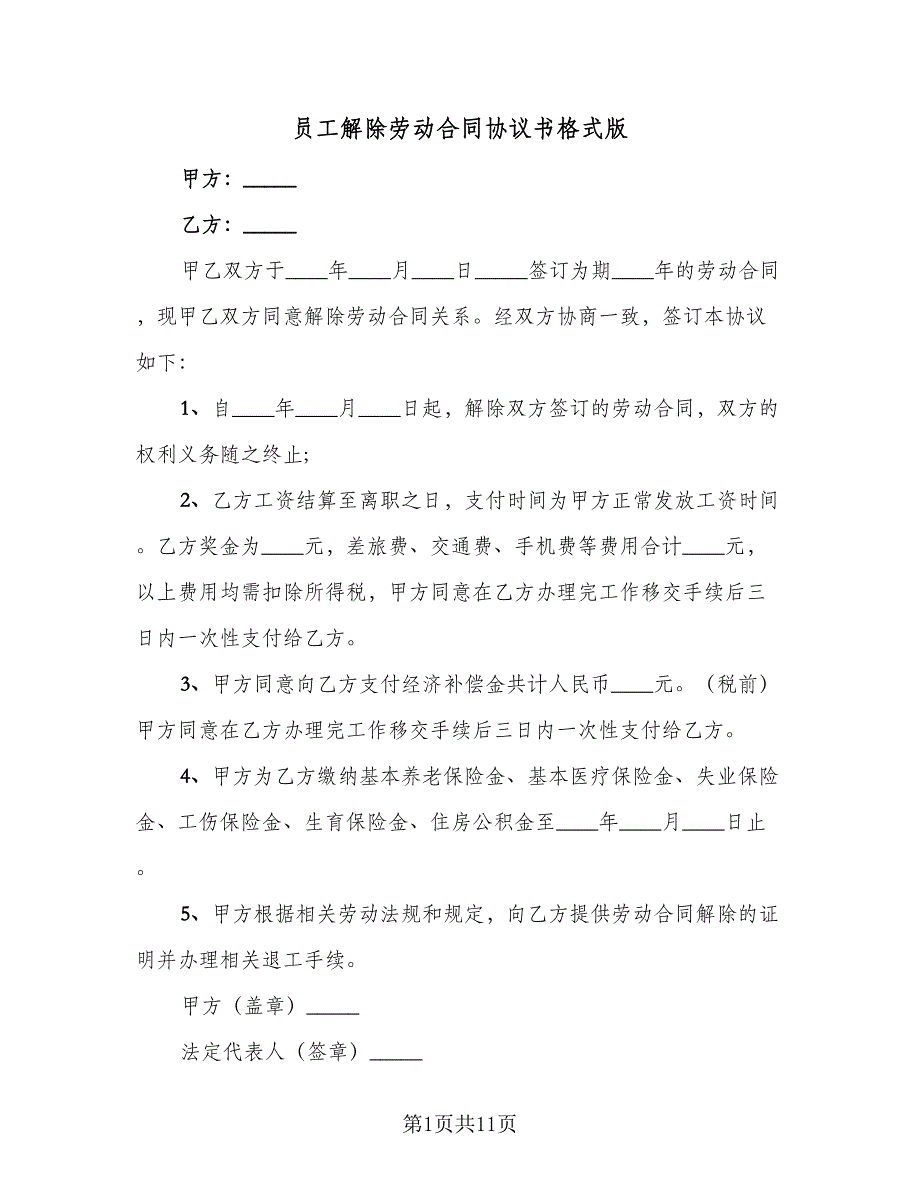 员工解除劳动合同协议书格式版
甲方：_____
乙方：_____
甲乙双方于____年____月____日_____签订为期____年的劳动合同
，现甲乙双方同意解除劳动合同关系。经双方协商一致，签订本协议
如下：
1、自____年____月____日起，解除双方签订的劳动合同，双方的
权利义务随之终止;
2、乙方工资结算至离职之日，支付时间为甲方正常发放工资时间
。乙方奖金为____元，差旅费、交通费、手机费等费用合计____元，
以上费用均需扣除所得税，甲方同意在乙方办理完工作移交手续后三
日内一次性支付给乙方。
3、甲方同意向乙方支付经济补偿金共计人民币____元。（税前）
甲方同意在乙方办理完工作移交手续后三日内一次性支付给乙方。
4、甲方为乙方缴纳基本养老保险金、基本医疗保险金、失业保险
金、工伤保险金、生育保险金、住房公积金至____年____月____日止
。
5、甲方根据相关劳动法规和规定，向乙方提供劳动合同解除的证
明并办理相关退工手续。
甲方（盖章）_____
法定代表人（签章）_____
第1页共11页